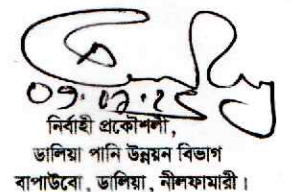 নির্বাহী প্রকৌশলী,
ডালিয়া পানি উন্নয়ন বিভাগ
বাপাউবো, ডালিয়া, নীলফামারী।